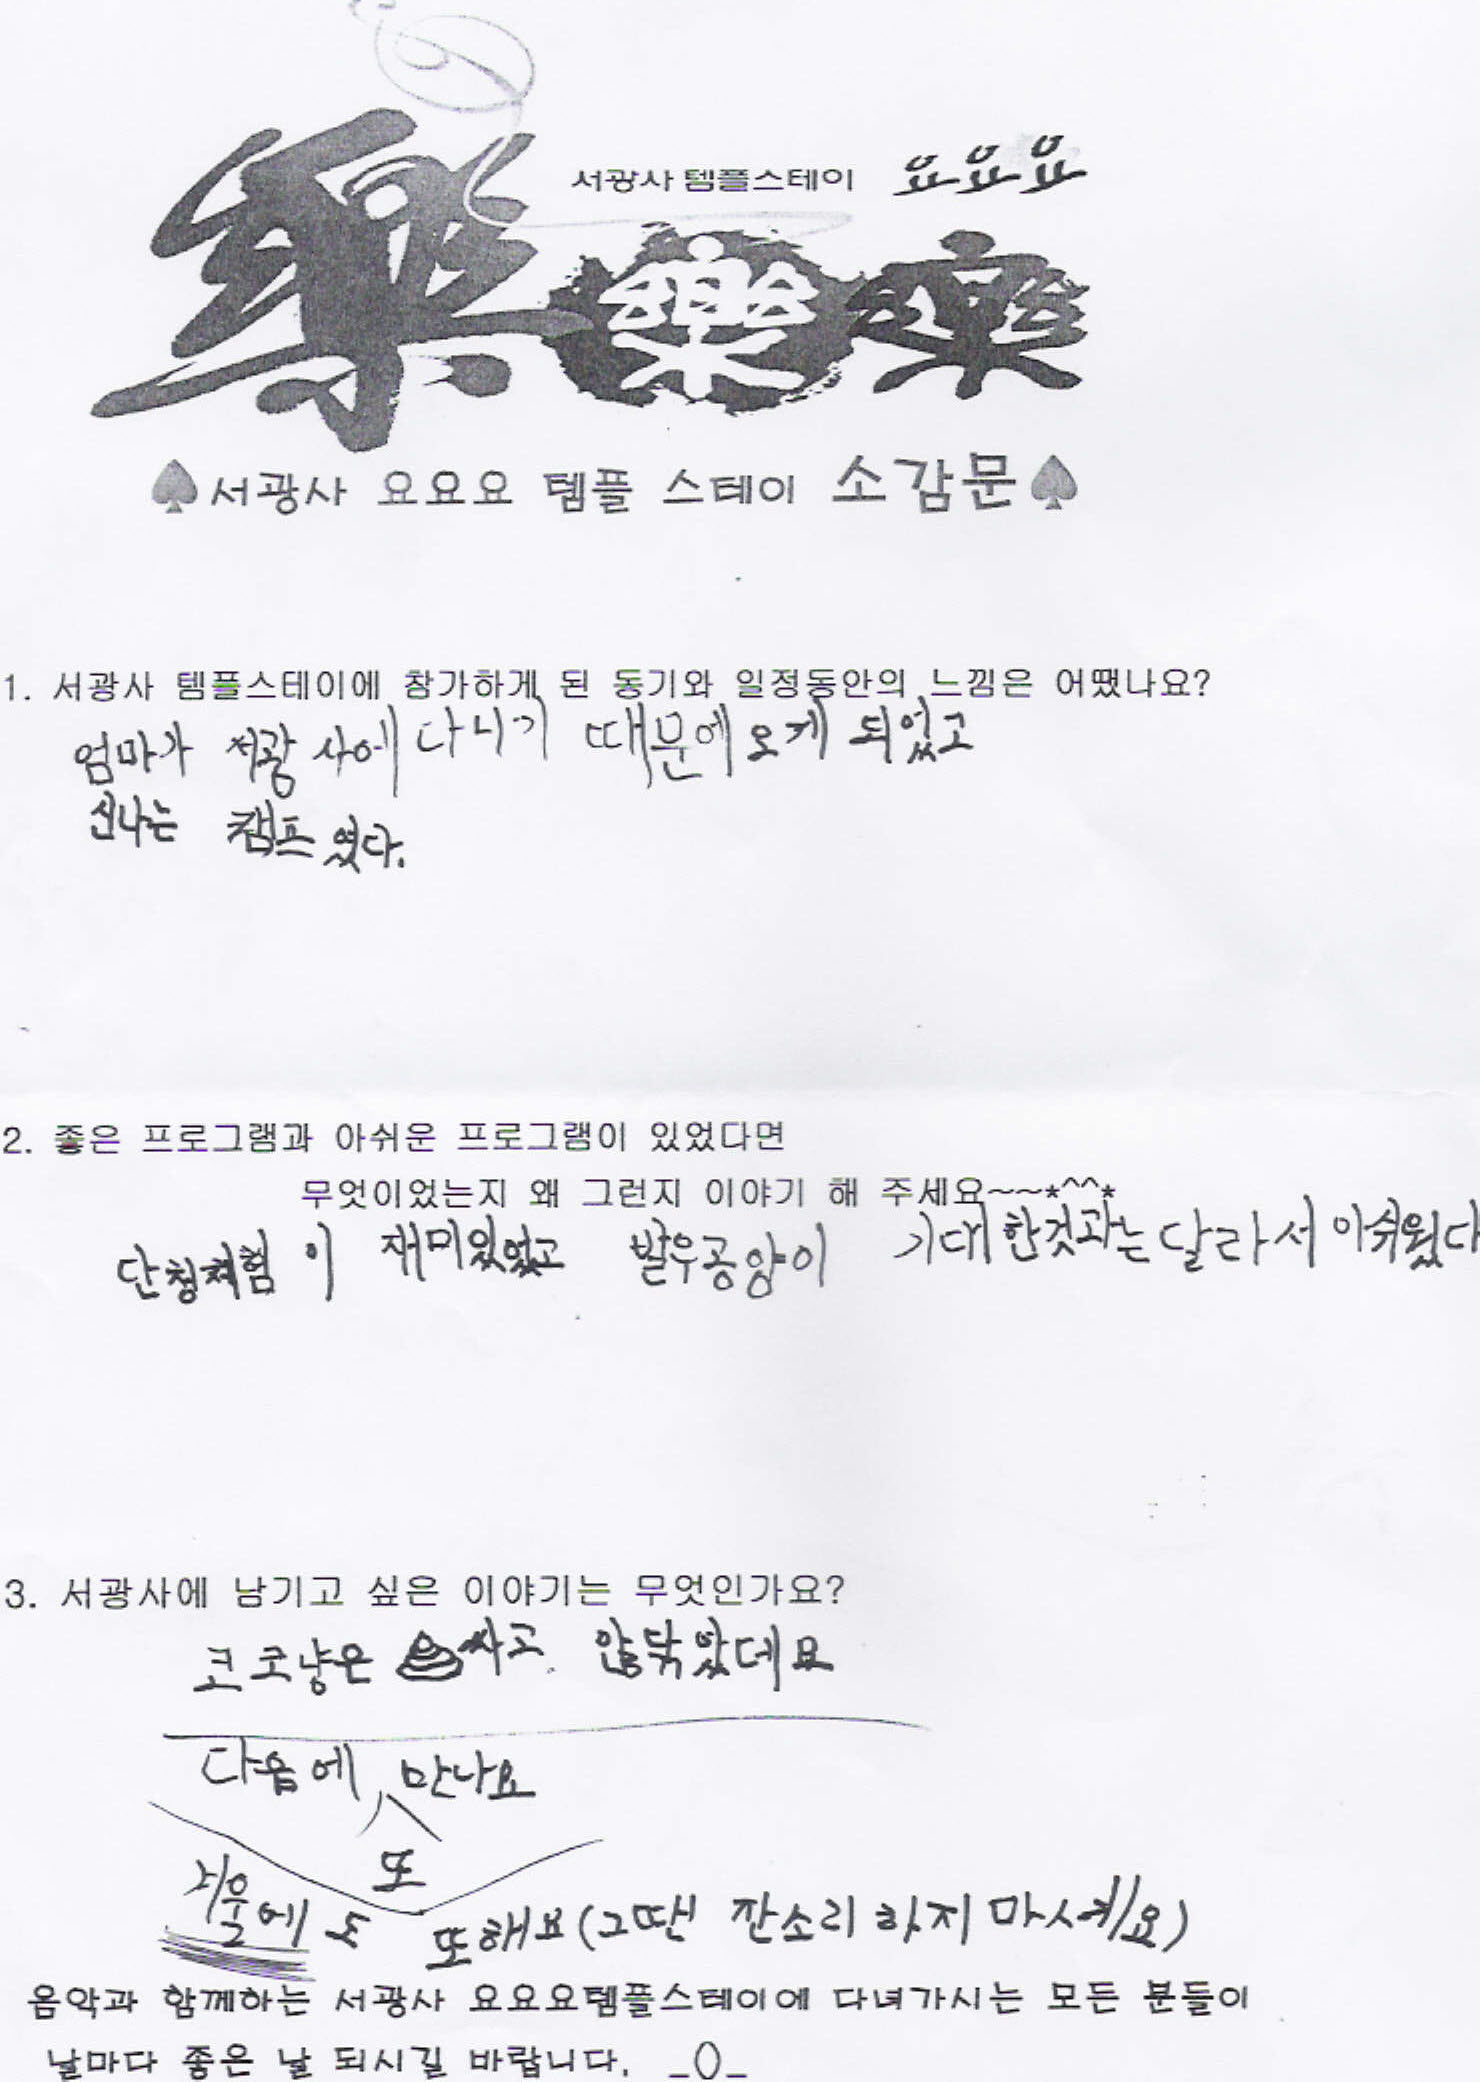 서광사 템플스테이 요요요
樂 樂 樂
♠서광사 요요요 템플 스테이 소감문♠
1. 서광사 템플스테이에 참가하게 된 동기와 일정동안의 느낌은 어땠나요?
엄마가 서광사에 다니기 때문에 오게 되었고
신나는 캠프였다.
2. 좋은 프로그램과 아쉬운 프로그램이 있었다면
무엇이었는지 왜 그런지 이야기 해 주세요~~*^^*
단청체험이 재미있었고 발우공양이 기대한것과는 달라서 아쉬웠다
3. 서광사에 남기고 싶은 이야기는 무엇인가요?
코코냥은 싸고 않닦았데요
다음에 만나요
또
겨울에도 또해요(그땐 잔소리 하지 마세요)
음악과 함께하는 서광사 요요요템플스테이에 다녀가시는 모든 분들이
날마다 좋은 날 되시길 바랍니다. _()_